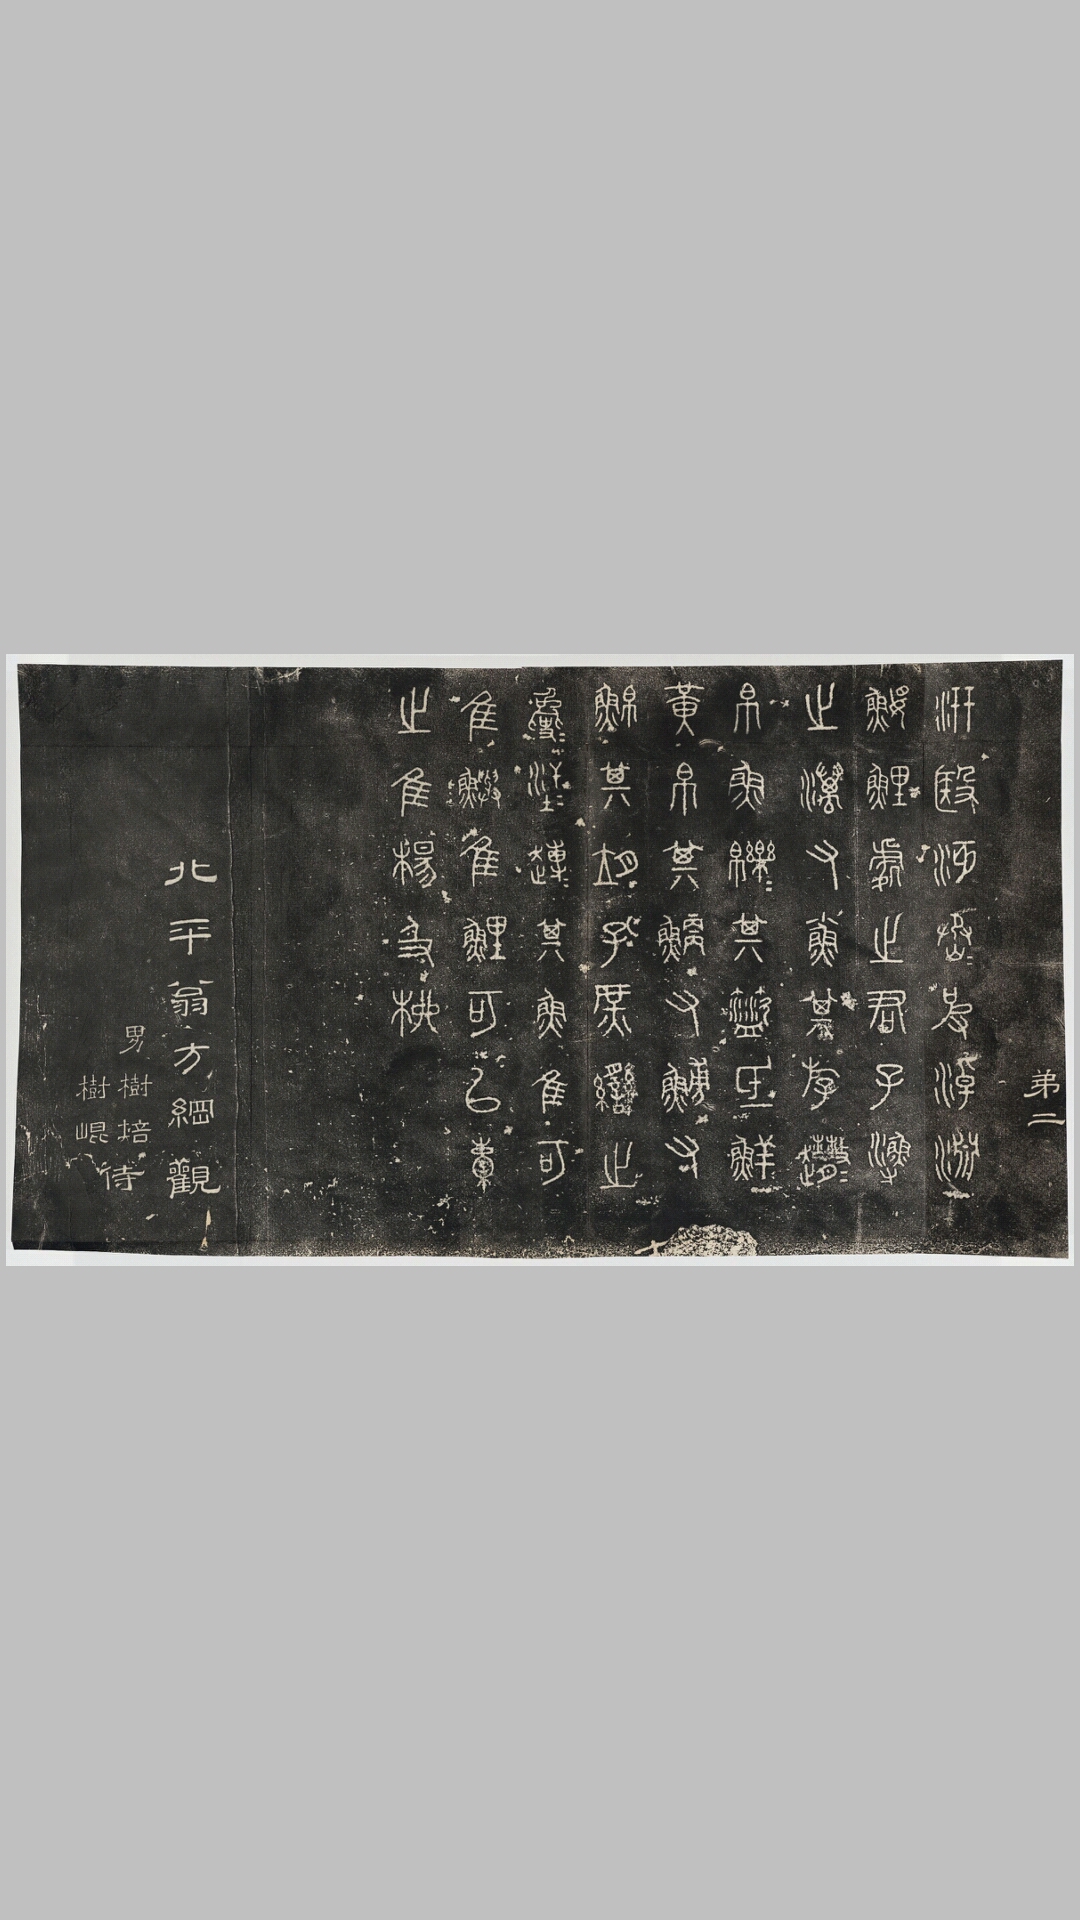 弟二
汧殹沔烝彼淖淵
鰋鯉處之君子漁
之澫又小魚其斿
帛魚鱳其氐鮮
黃帛其鯿又鰟又
鮊其孔庶臠之
其魚隹可
隹鱮隹鯉可以橐
之隹楊及柳
北平翁方綱觀
男樹培
樹崐
侍